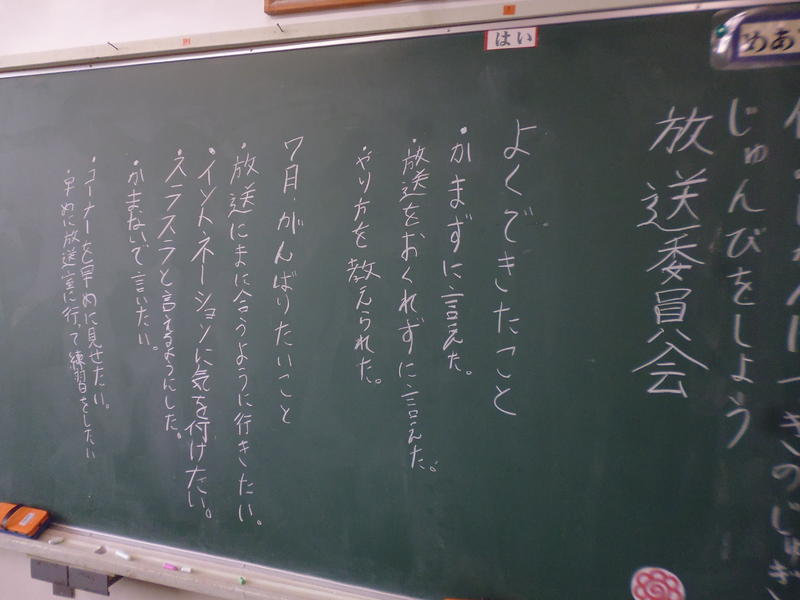 はい
めあ
じゅんびをしよう
放送委員会
よくできたこと
・かまずに言えた。
・放送をおくれずに言えた。
・やり方を教えられた。
7月、がんばりたいこと
・放送にまに合うように行きたい。
・イントネーションに気を付けたい。
・スラスラと言えるようにした。
・かまないで言いたい。
・コーナーを早めに見せたい。
・早めに放送室に行って練習をしたい